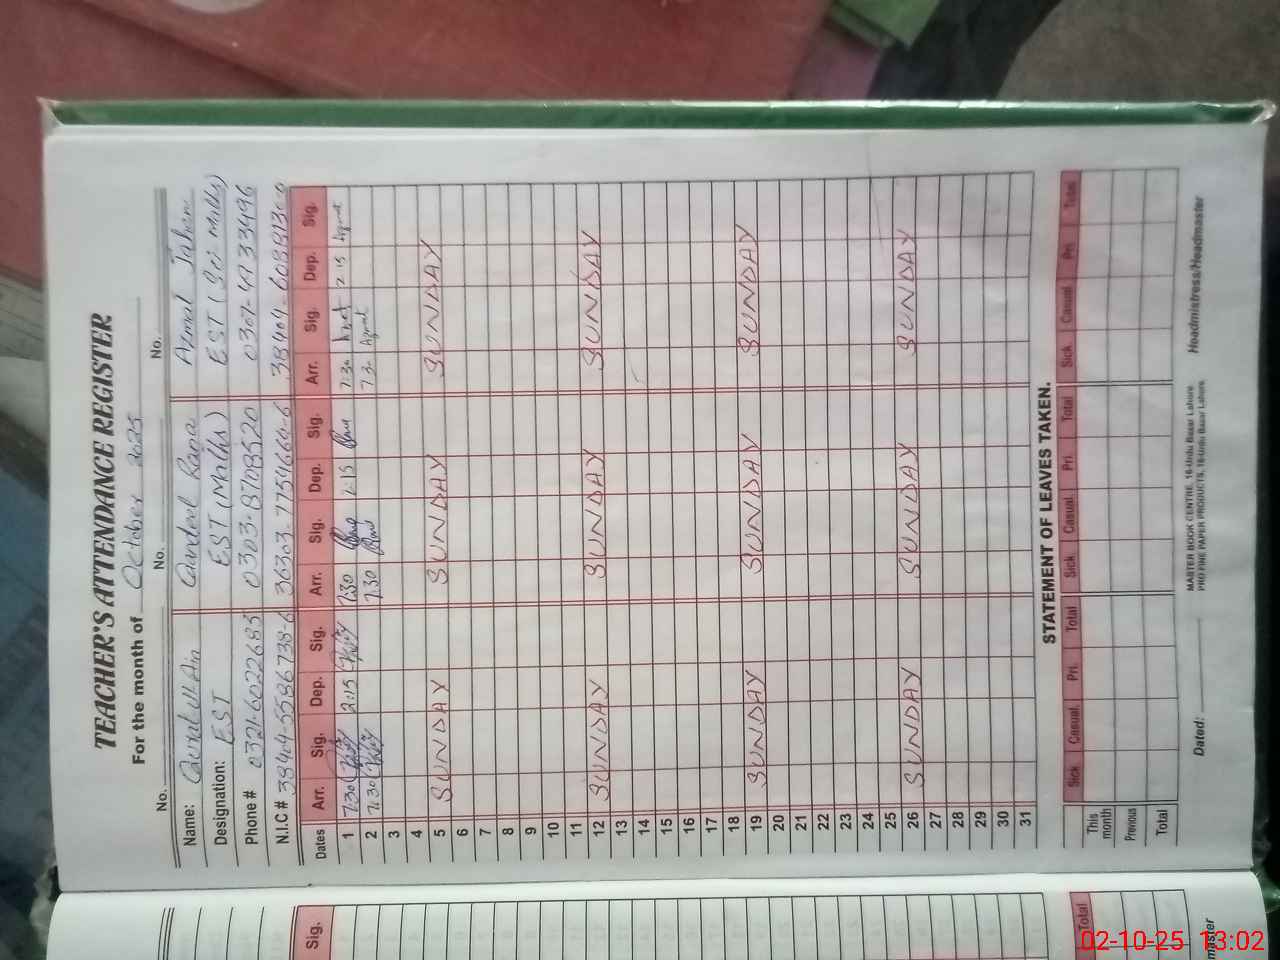 TEACHER'S ATTENDANCE REGISTER
For the month of October 2025
No. No. No.
Name: Qurat Ul Ain Qandeel Rana Azmat Jaheen
Designation: EST EST (Maths) EST (Sci-Maths)
Phone # 0321-6022685 0303-8708520 0307-4733496
N.I.C # 38404-5586738-6 36303-7754664-6 38404-
Dates Arr. Sig. Dep. Sig. Arr. Sig. Dep. Sig. Arr. Sig. Dep. Sig.
1 7:30 2:15 7:30 2:15 7:30 Azmat 2:15 Azmat
2 7:30 7:30 7:3 Azmat
3
4
5 SUNDAY SUNDAY SUNDAY
6
7
8
9
10
11
12 SUNDAY SUNDAY SUNDAY
13
14
15
16
17
18
19 SUNDAY SUNDAY SUNDAY
20
21
22
23
24
25
26 SUNDAY SUNDAY SUNDAY
27
28
29
30
31
STATEMENT OF LEAVES TAKEN.
Sick Casual Pri. Total Sick Casual Pri. Total Sick Casual Pri. Total
This month
Previous
Total
MASTER BOOK CENTRE, 16-Urdu Bazar Lahore
PRO FINE PAPER PRODUCTS, 16-Urdu Bazar Lahore.
Dated: Headmistress/Headmaster
Sig.
Total
master
02-10-25 13:02